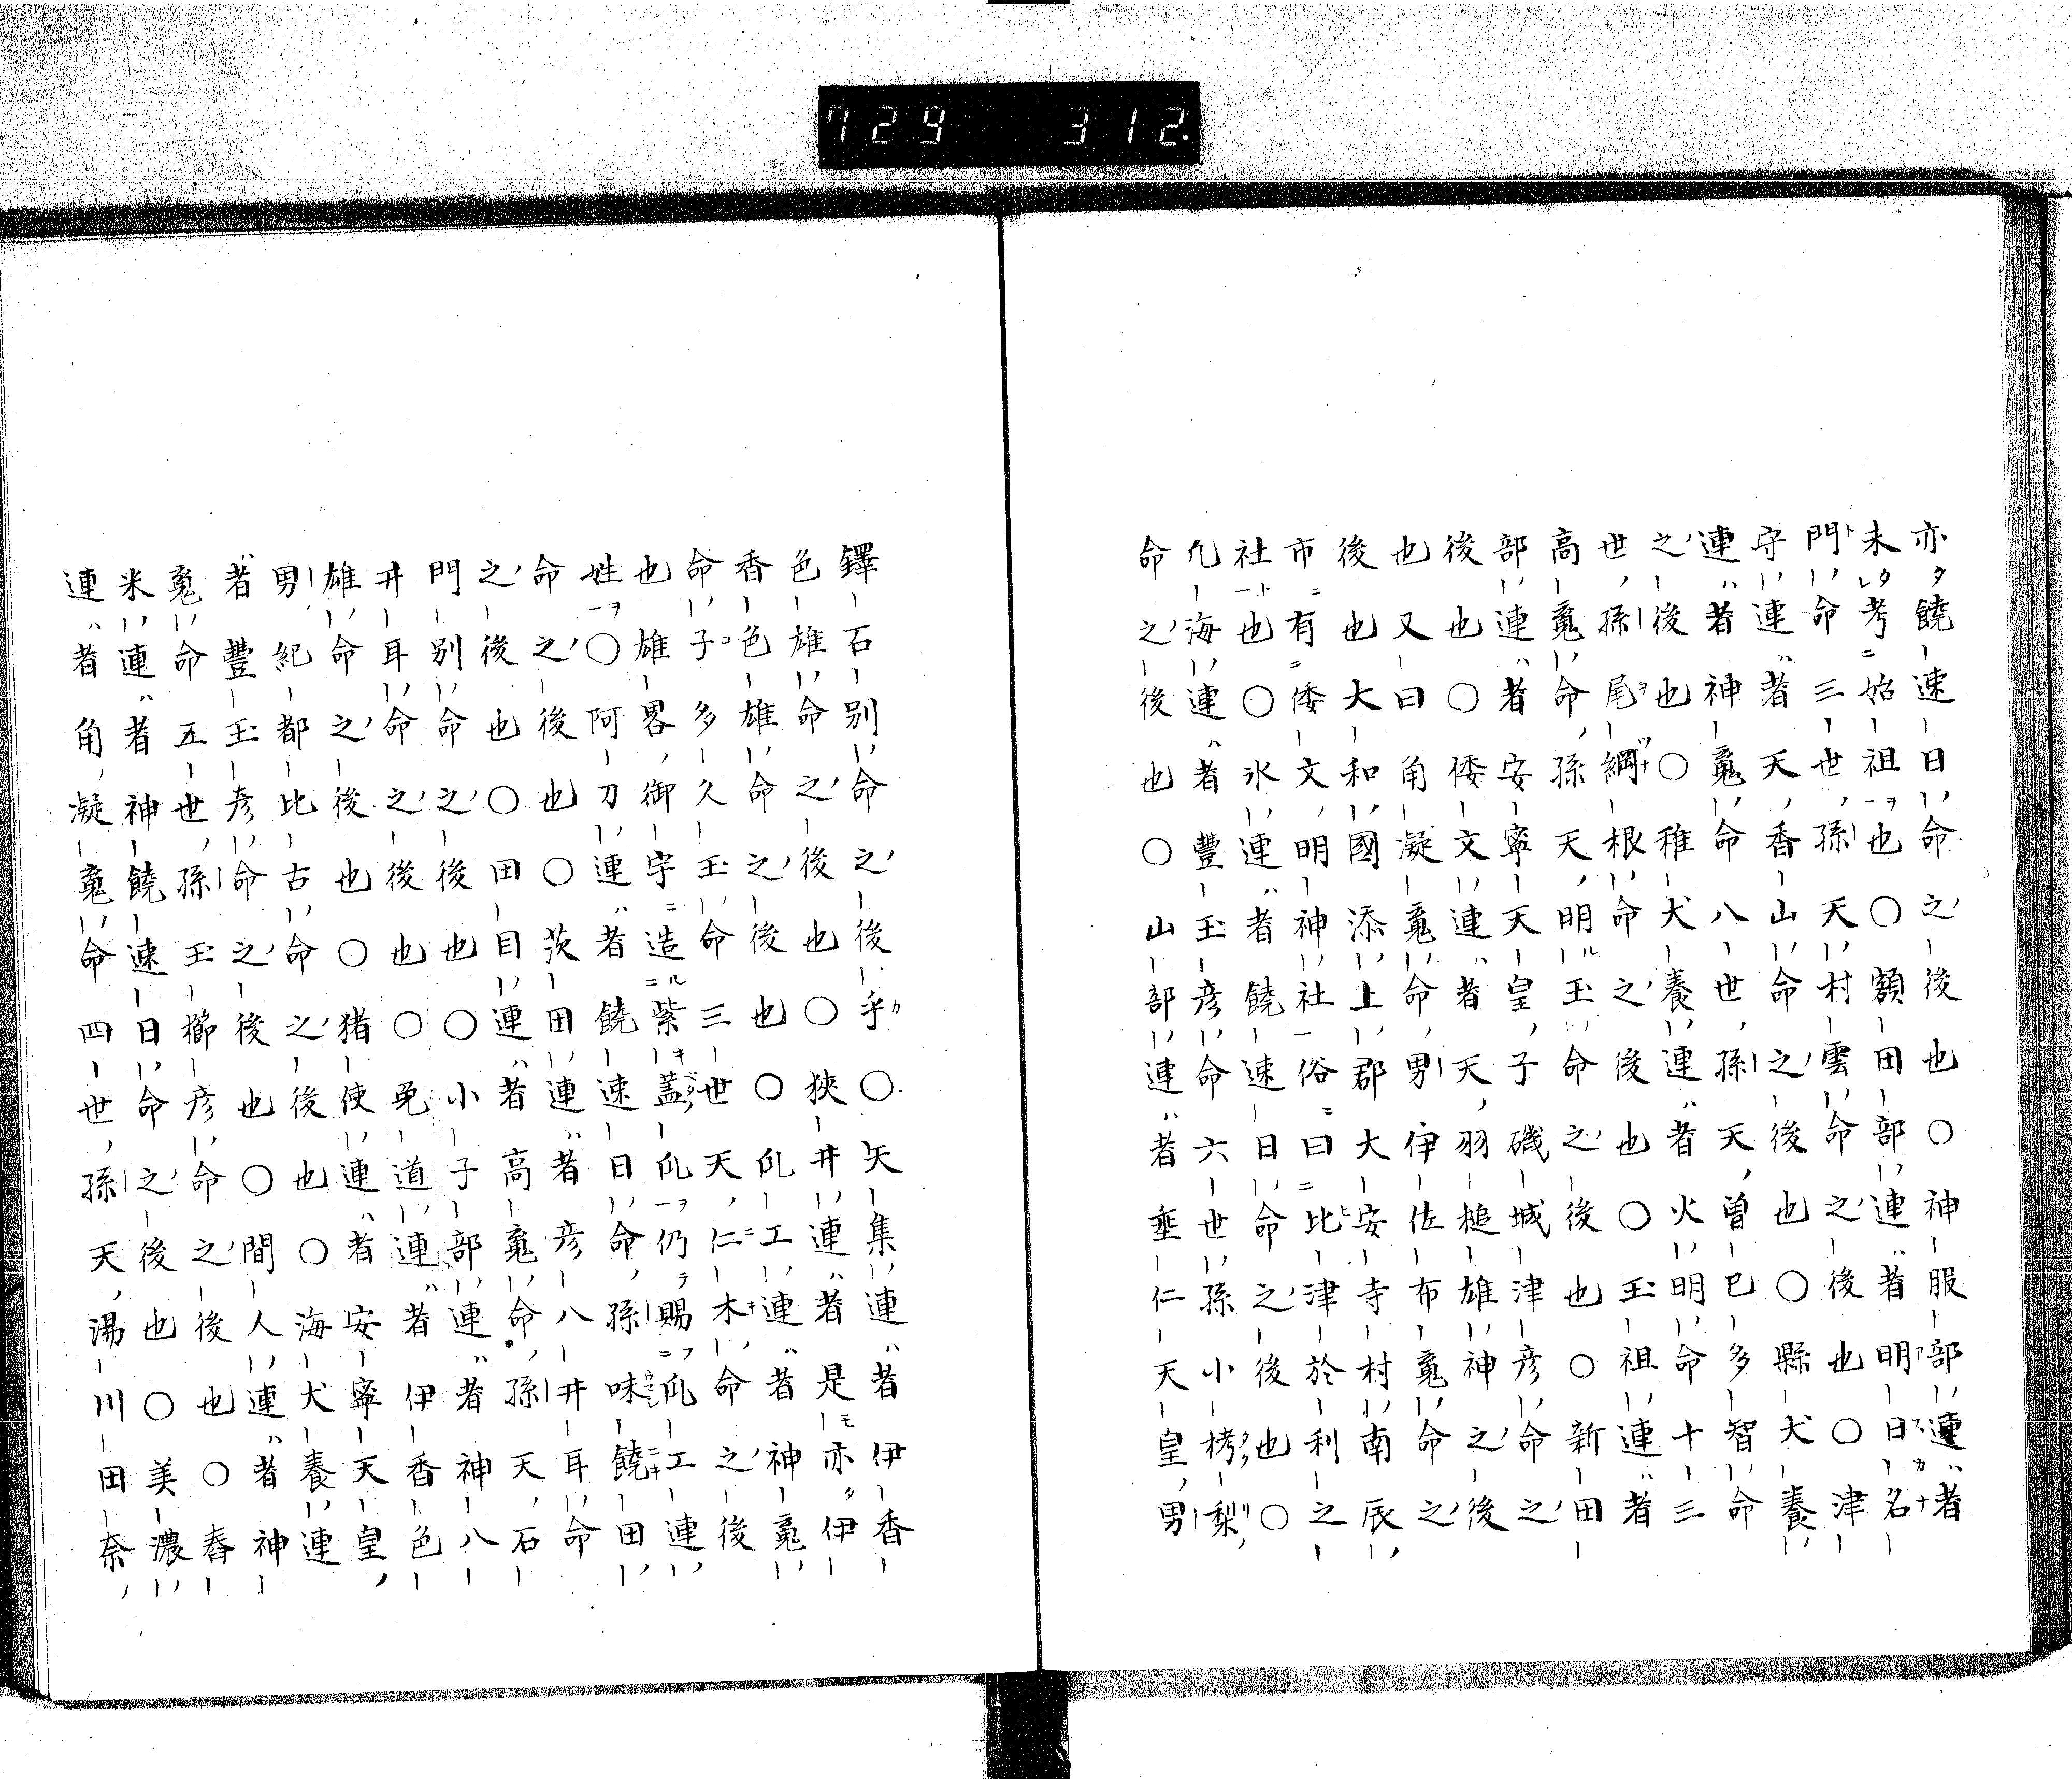 729 312
亦饒速日命之後也〇神服部連者
未考始祖也〇額田部連者明日名
門命三世孫天村雲命之後也〇津
守連者天香山命之後也〇縣犬養
連者神䰟命八世孫天曽己多智命
之後也〇稚犬養連者火明命十三
世孫尾綱根命之後也〇玉祖連者
高䰟命孫天明玉命之後也〇新田
部連者安寧天皇子磯城津彦命之
後也〇倭文連者天羽槌雄神之後
也又曰角凝䰟命男伊佐布䰟命之
後也大和國添上郡大安寺村南辰
市有倭文明神社俗曰比津於利之
社也〇氷連者饒速日命之後也〇
凢海連者豐玉彦命六世孫小栲梨
命之後也〇山部連者垂仁天皇男
鐸石別命之後乎〇矢集連者伊香
色雄命之後也〇狹井連者是亦伊
香色雄命之後也〇爪工連者神䰟
命子多久玉命三世天仁木命之後
也雄畧御宇造紫蓋爪仍賜爪工連
姓〇阿刀連者饒速日命孫味饒田
命之後也〇茨田連者彦八井耳命
之後也〇田目連者高䰟命孫天石
門別命之後也〇小子部連者神八
井耳命之後也〇菟道連者伊香色
雄命之後也〇猪使連者安寧天皇
男紀都比古命之後也〇海犬養連
者豐玉彦命之後也〇間人連者神
䰟命五世孫玉櫛彦命之後也〇舂
米連者神饒速日命之後也〇美濃
連者角凝䰟命四世孫天湯川田奈